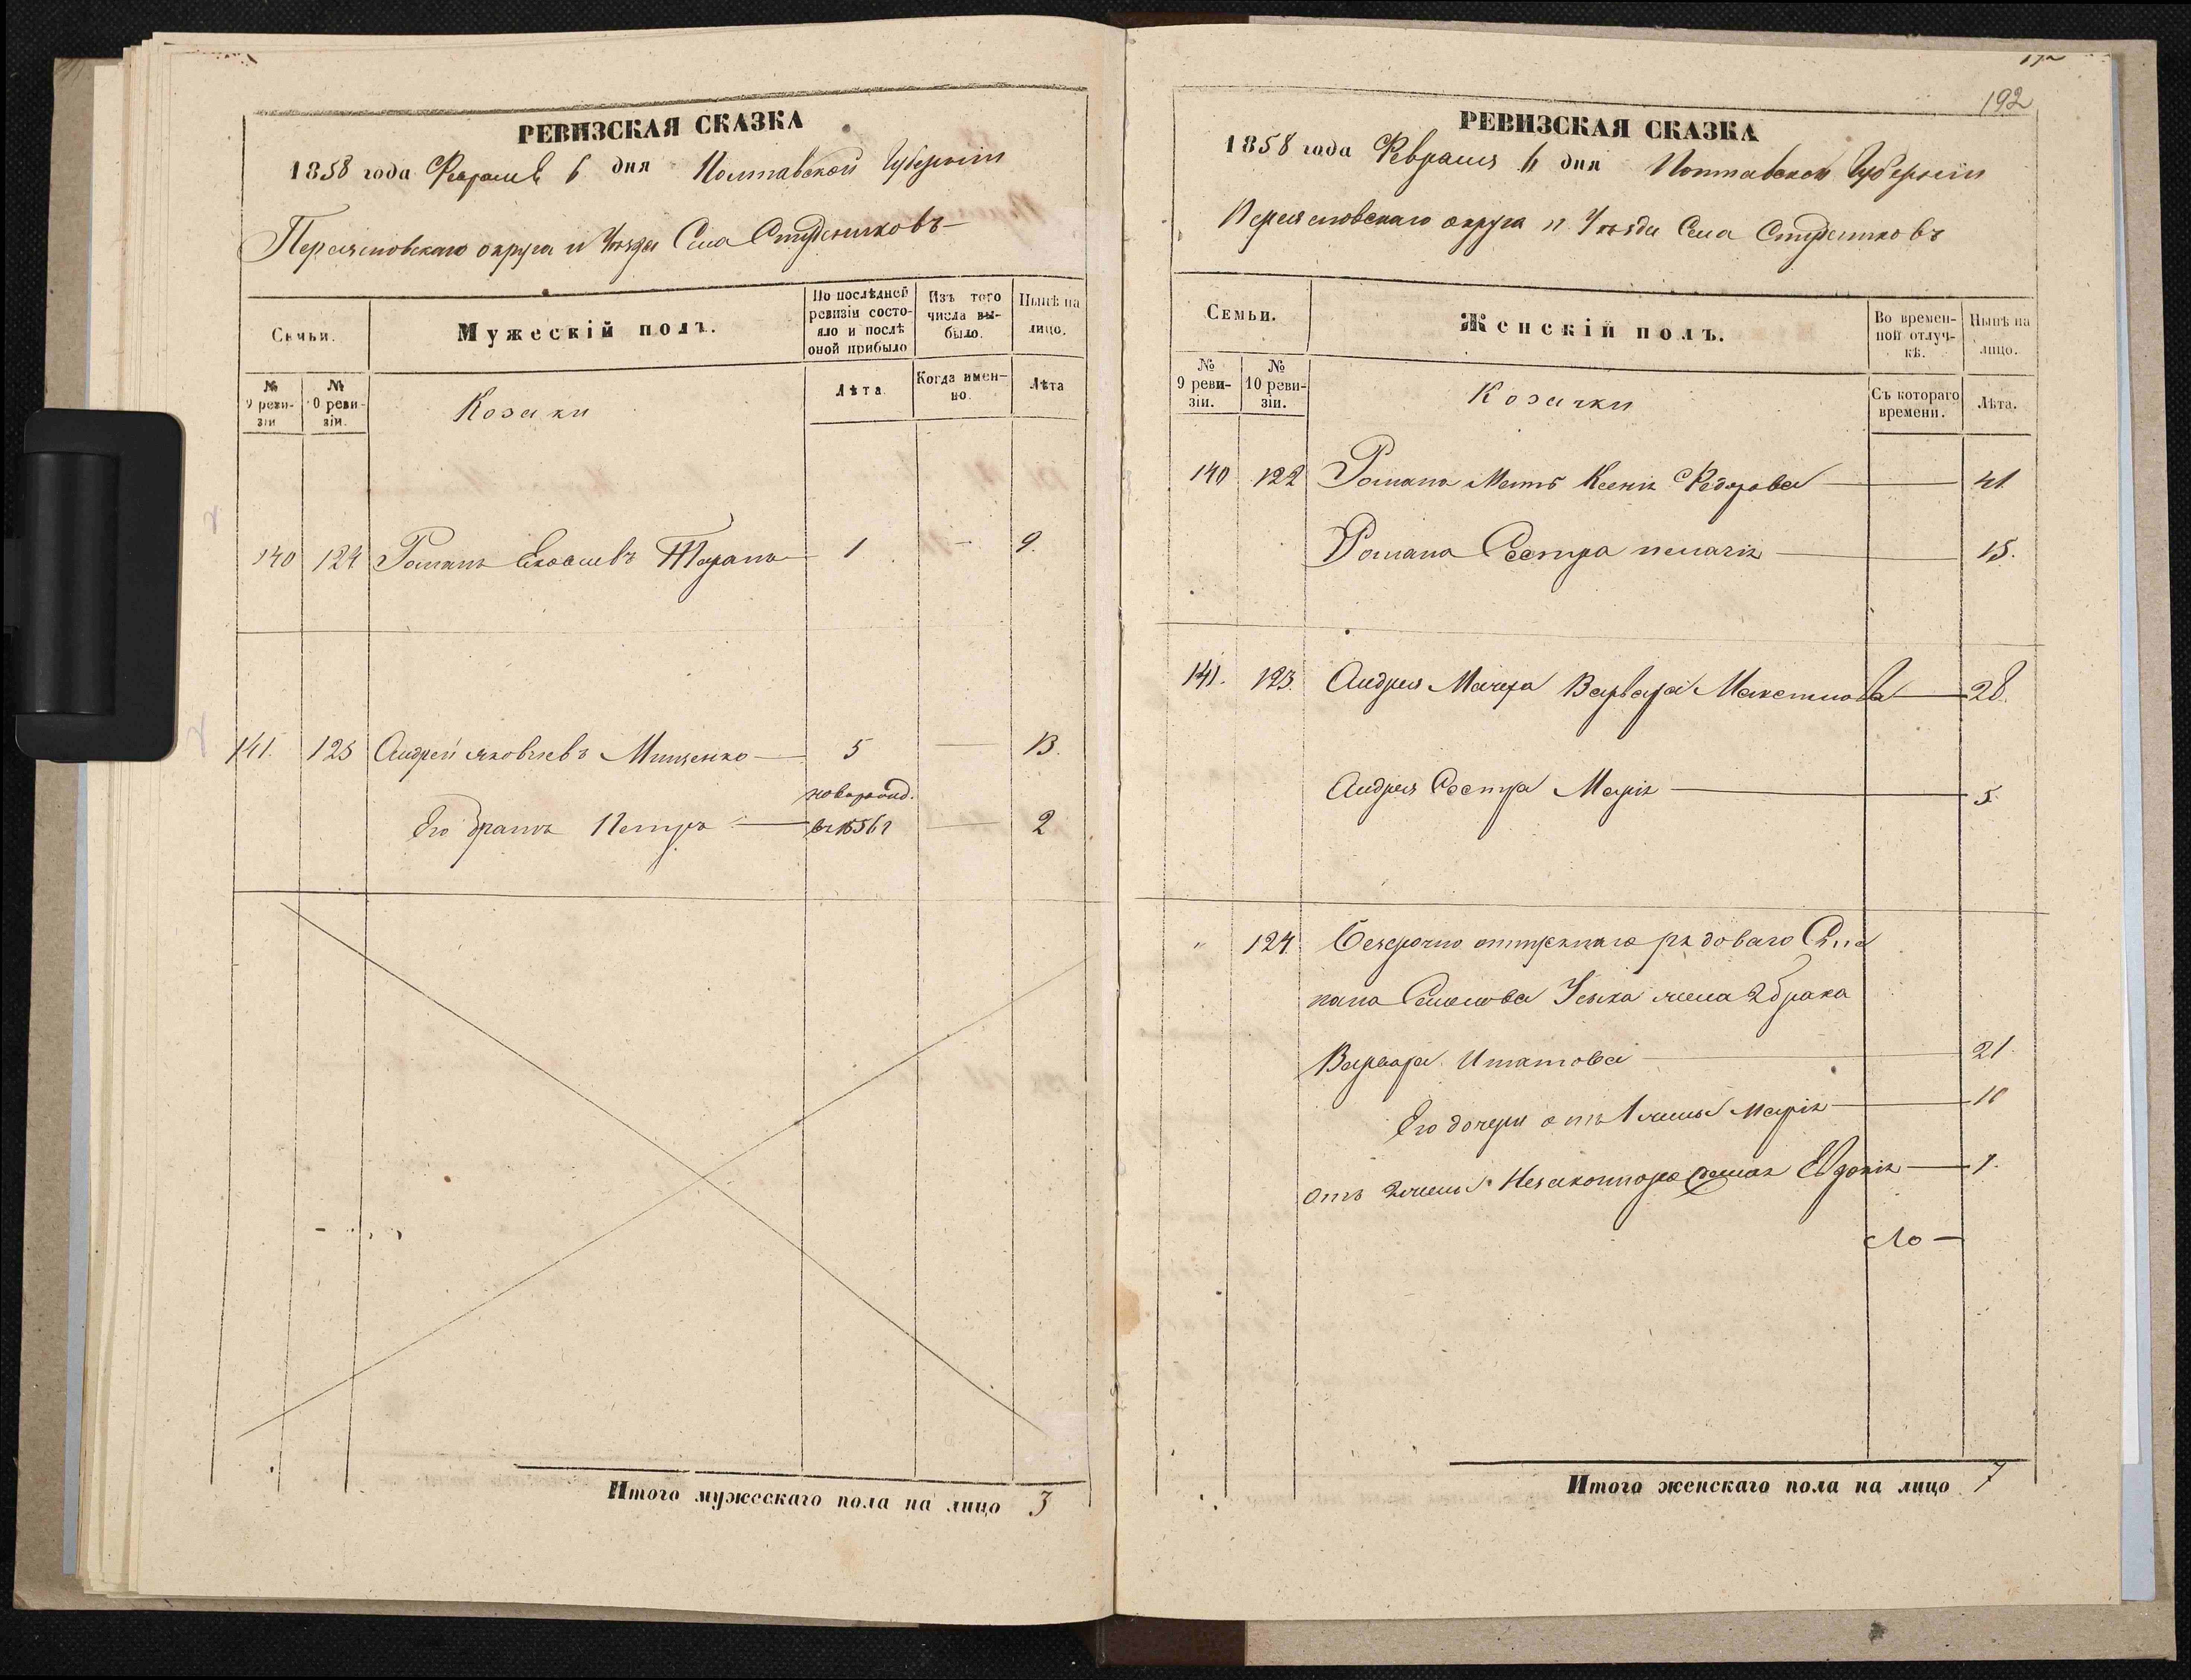 РЕВИЗСКАЯ СКАЗКА
1858 года Февраля 6 дня Полтавской Губернiи
Переясловскаго округа и Уѣзда Села Студениковъ
Семьи.
Мужескiй полъ.
По послѣдней ревизiи состояло и послѣ оной прибыло
Изъ того числа выбыло.
Нынѣ на лицо.
№ 9 ревизiи
№ 10 ревизiи.
Козаки
Лѣта
Когда именно.
Лѣта
140 124 Романъ Яковлевъ Таранъ 1 — 9.
141. 125 Андрей Яковлевъ Мищенко — 5 — 13.
новорожд.
Его братъ Петръ — въ 1856 г — 2
Итого мужескаго пола на лицо 3
192
РЕВИЗСКАЯ СКАЗКА
1858 года Февраля 6 дня Полтавской Губернiи
Переясловскаго округа и Уѣзда Села Студениковъ
Семьи.
Женскiй полъ.
Во временной отлучкѣ.
Нынѣ на лицо.
№ 9 ревизiи.
№ 10 ревизiи.
Козачки
Съ котораго времени.
Лѣта.
140 122 Романа Мать Ксенія Федорова — 41.
Романа Сестра — 15.
141. 123. Андрея Мачеха Варвара Максимова — 28.
Андрея Сестра Марія — 5.
" 124. безсрочно отпускнаго рядоваго Сте
пана Семенова Усика жена 2 брака
Варвара Игнатова — 21.
Его дочери отъ 1 жены Марія — 10
отъ 2 жены Евдокія — 1.
Итого женскаго пола на лицо 7